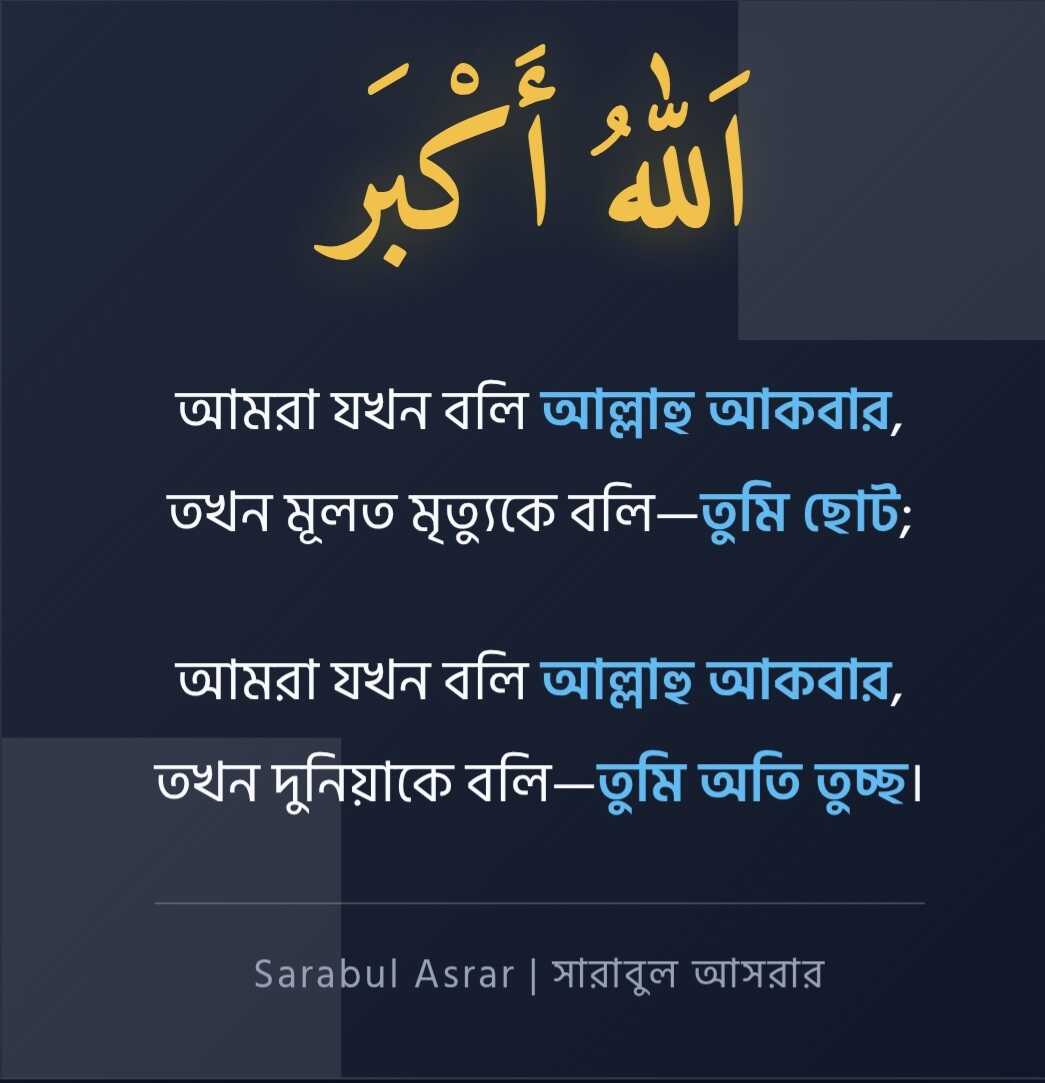 اَللّٰهُ أَكْبَرَ
আমরা যখন বলি আল্লাহু আকবার,
তখন মূলত মৃত্যুকে বলি—তুমি ছোট;
আমরা যখন বলি আল্লাহু আকবার,
তখন দুনিয়াকে বলি—তুমি অতি তুচ্ছ।
Sarabul Asrar | সারাবুল আসরার